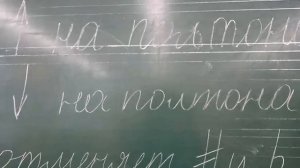 ↑ на полтона
↓ на полтона
отменяет # и b